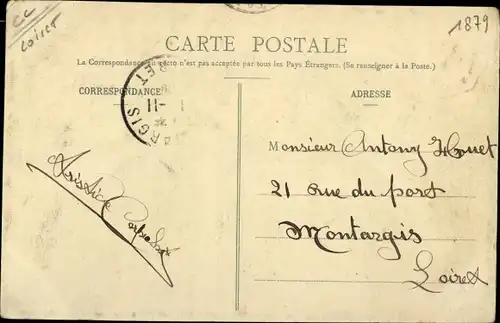 CC
Loiret
1879
CARTE POSTALE
La Correspondance au recto n'est pas acceptée par tous les Pays Étrangers. (Se renseigner à la Poste.)
CORRESPONDANCE
ADRESSE
RGIS
RET
11
Monsieur Antony Houet
21 rue du port
Montargis
Loiret
Aristide